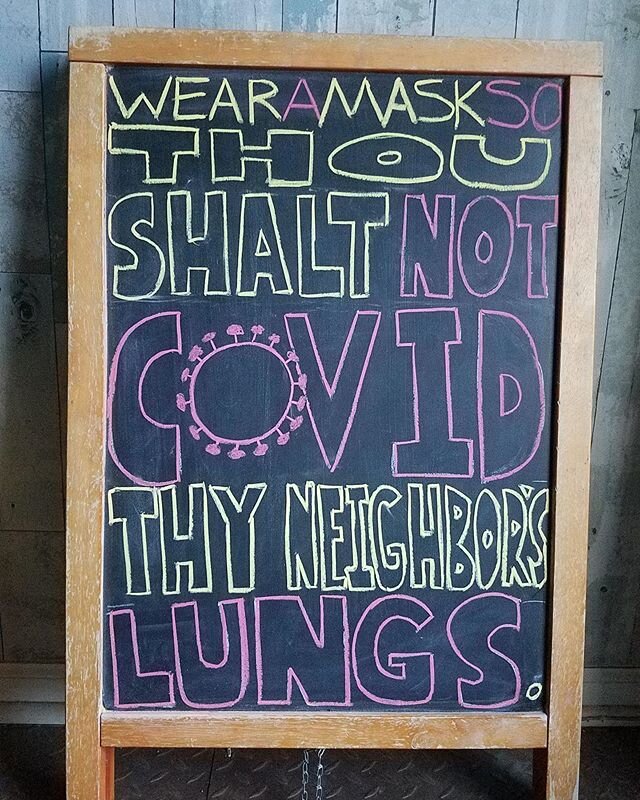 WEAR A MASK SO
THOU
SHALT NOT
COVID
THY NEIGHBOR'S
LUNGS.